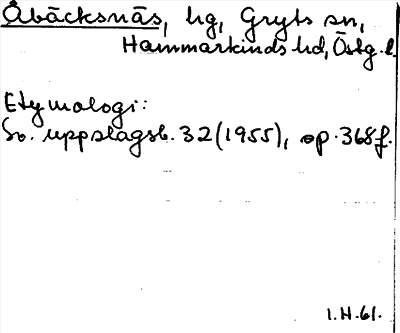 Åbäcksnäs, hg, Gryts sn,
Hammarkinds hd, Östg. l.
Etymologi:
Sv. uppslagsb. 32 (1955), sp. 368 f.
1.H.61.